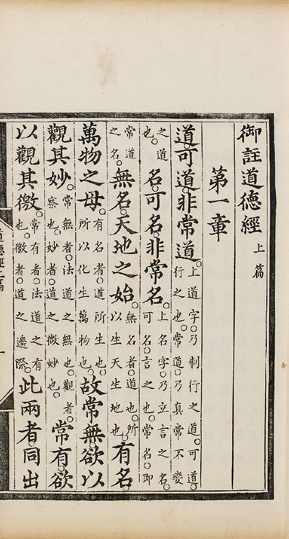 御註道德經 上篇
第一章
道可道非常道。上道字。乃制行之道。可道。行之也。常道。乃真常不變
之道也。名可名非常名。上名字。乃立言之名。可名。言之也。常名。即
常道之名。無名。天地之始。無名者。道也。所以生天生地也。有名。
萬物之母。有名者。道所生也。所以化生萬物也。故常無欲以
觀其妙。常無者。法道之無也。觀者。察也。妙者。道之微妙也。常有欲
以觀其徼。常有者。法道之有也。徼者。道之邊際。此兩者。同出